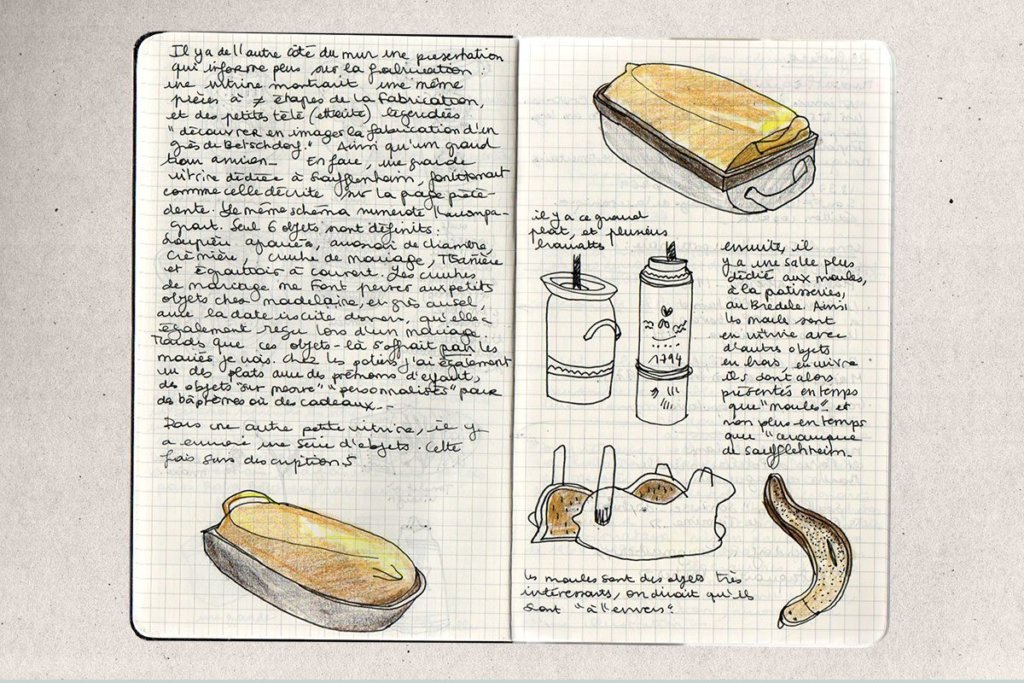 Il y a de l'autre côté du mur une présentation
qui informe plus sur la fabrication :
une vitrine montrait une même
pièces à ≠ étapes de la fabrication,
et des petites télé (éteinte) légendées
"découvrer en images la fabrication d'un
grès de Betschdorf." Ainsi qu'un grand
four ancien_ En face, une grande
vitrine dédiée à Soufflenheim, fonctionnant
comme celle décrite sur la page précé-
dente. Le même schéma numéroté l'accompa-
gnait. Seul 6 objets sont définits :
Soupière apanée, de chambre,
crémière, cruche de mariage,
et égouttoir à couvert. Les cruches
de mariage me font penser aux petits
objets chez madelaine, en grès au sel,
avec la date inscite dessus qu'elle à
également reçu lors d'un mariage
Tandis que ces objets-là s'offrait par les
mariés je crois. Chez les potiers j'ai également
vu des plats avec des prénoms d'enfant,
des objets "sur mesure" "personnalisés" pour
des bâptêmes où des cadeaux._
Dans une autre petite vitrine, il y
a encore une série d'objets. Cette
fois sans descriptions.
il y a ce grand
plat, et plusieurs
1794
ensuite, il
y a une salle plus
dédié aux moules,
à la patisseries,
au Bredele. Ainsi
les moule sont
en vitrine avec
d'autres objets
en bois, en cuivre
ils sont alors
présentés en temps
que "moules" et
non plus en temps
que "céramique
de soufflehheim_
les moules sont des objets très
intérressants, on dirait qu'ils
sont "à l'envers".